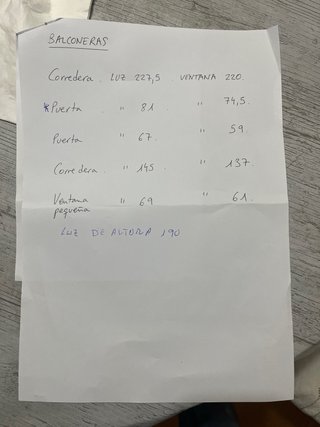 BALCONERAS
Corredera. LUZ 227,5. VENTANA 220.
*Puerta " 81 " 74,5.
Puerta " 67. " 59.
Corredera. " 145. " 137.
Ventana pequeña " 69 " 61.
LUZ DE ALTURA 190